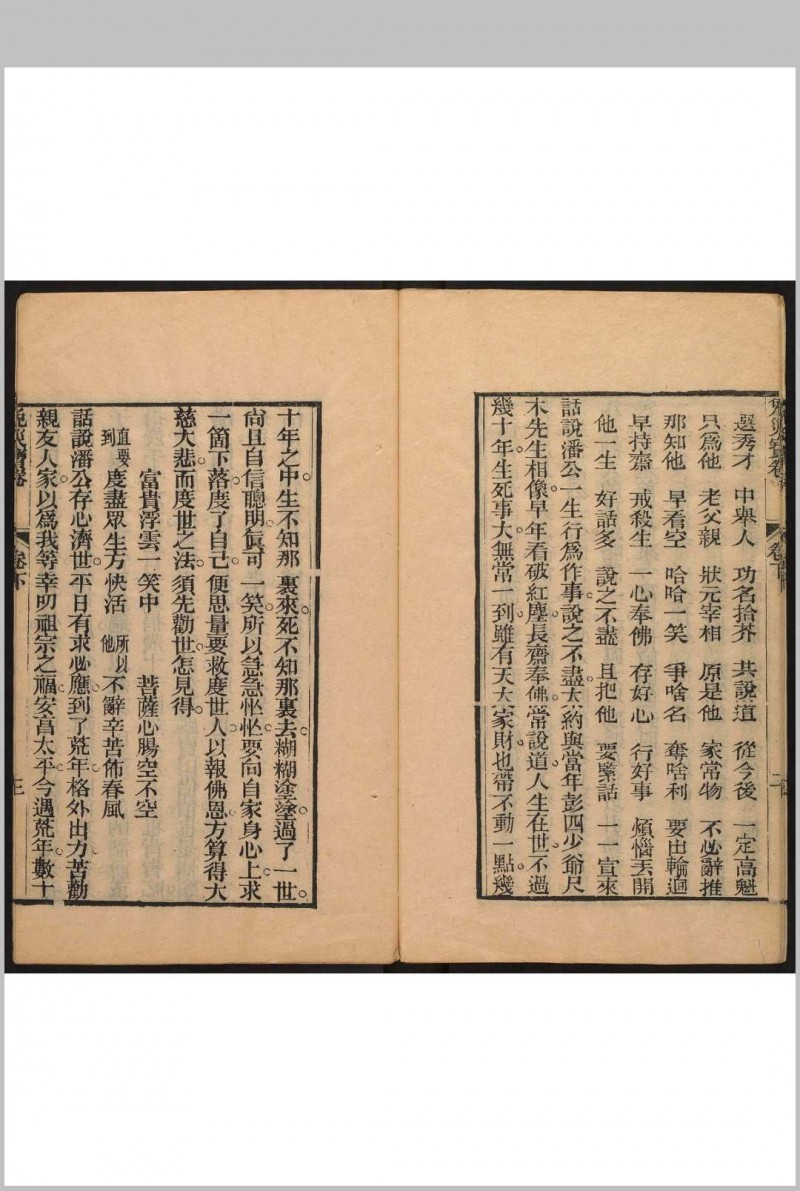 免災寶卷
卷下
二
選秀才 中舉人 功名拾芥 共說道 從今後 一定高魁
只爲他 老父親 狀元宰相 原是他 家常物 不必辭推
那知他 早看空 哈哈一笑 爭啥名 奪啥利 要出輪迴
早持齋 戒殺生 一心奉佛 存好心 行好事 煩惱丟開
他一生 好話多 說之不盡 且把他 要緊話 一一宣來
話說潘公一生行爲作事。說之不盡。大約與當年彭四少爺尺
木先生相像。早年看破紅塵。長齋奉佛。常說道。人生在世。不過
幾十年。生死事大。無常一到。雖有天大家財。也帶不動一點。幾
十年之中。生不知那裏來。死不知那裏去。糊糊塗塗過了一世。
尚且自信聰明。眞可一笑。所以急急忙忙。要向自家身心上。求
一箇下落。度了自己。便思量要救度世人。以報佛恩。方算得大
慈大悲。而度世之法。須先勸世。怎見得。
富貴浮雲一笑中 菩薩心腸空不空
直要到度盡眾生方快活 所以他不辭辛苦佈春風
話說潘公存心濟世。平日有求必應。到了荒年。格外出力。苦勸
親友人家。以爲我等幸叨祖宗之福。安享太平。今遇荒年。數十
卷下
三